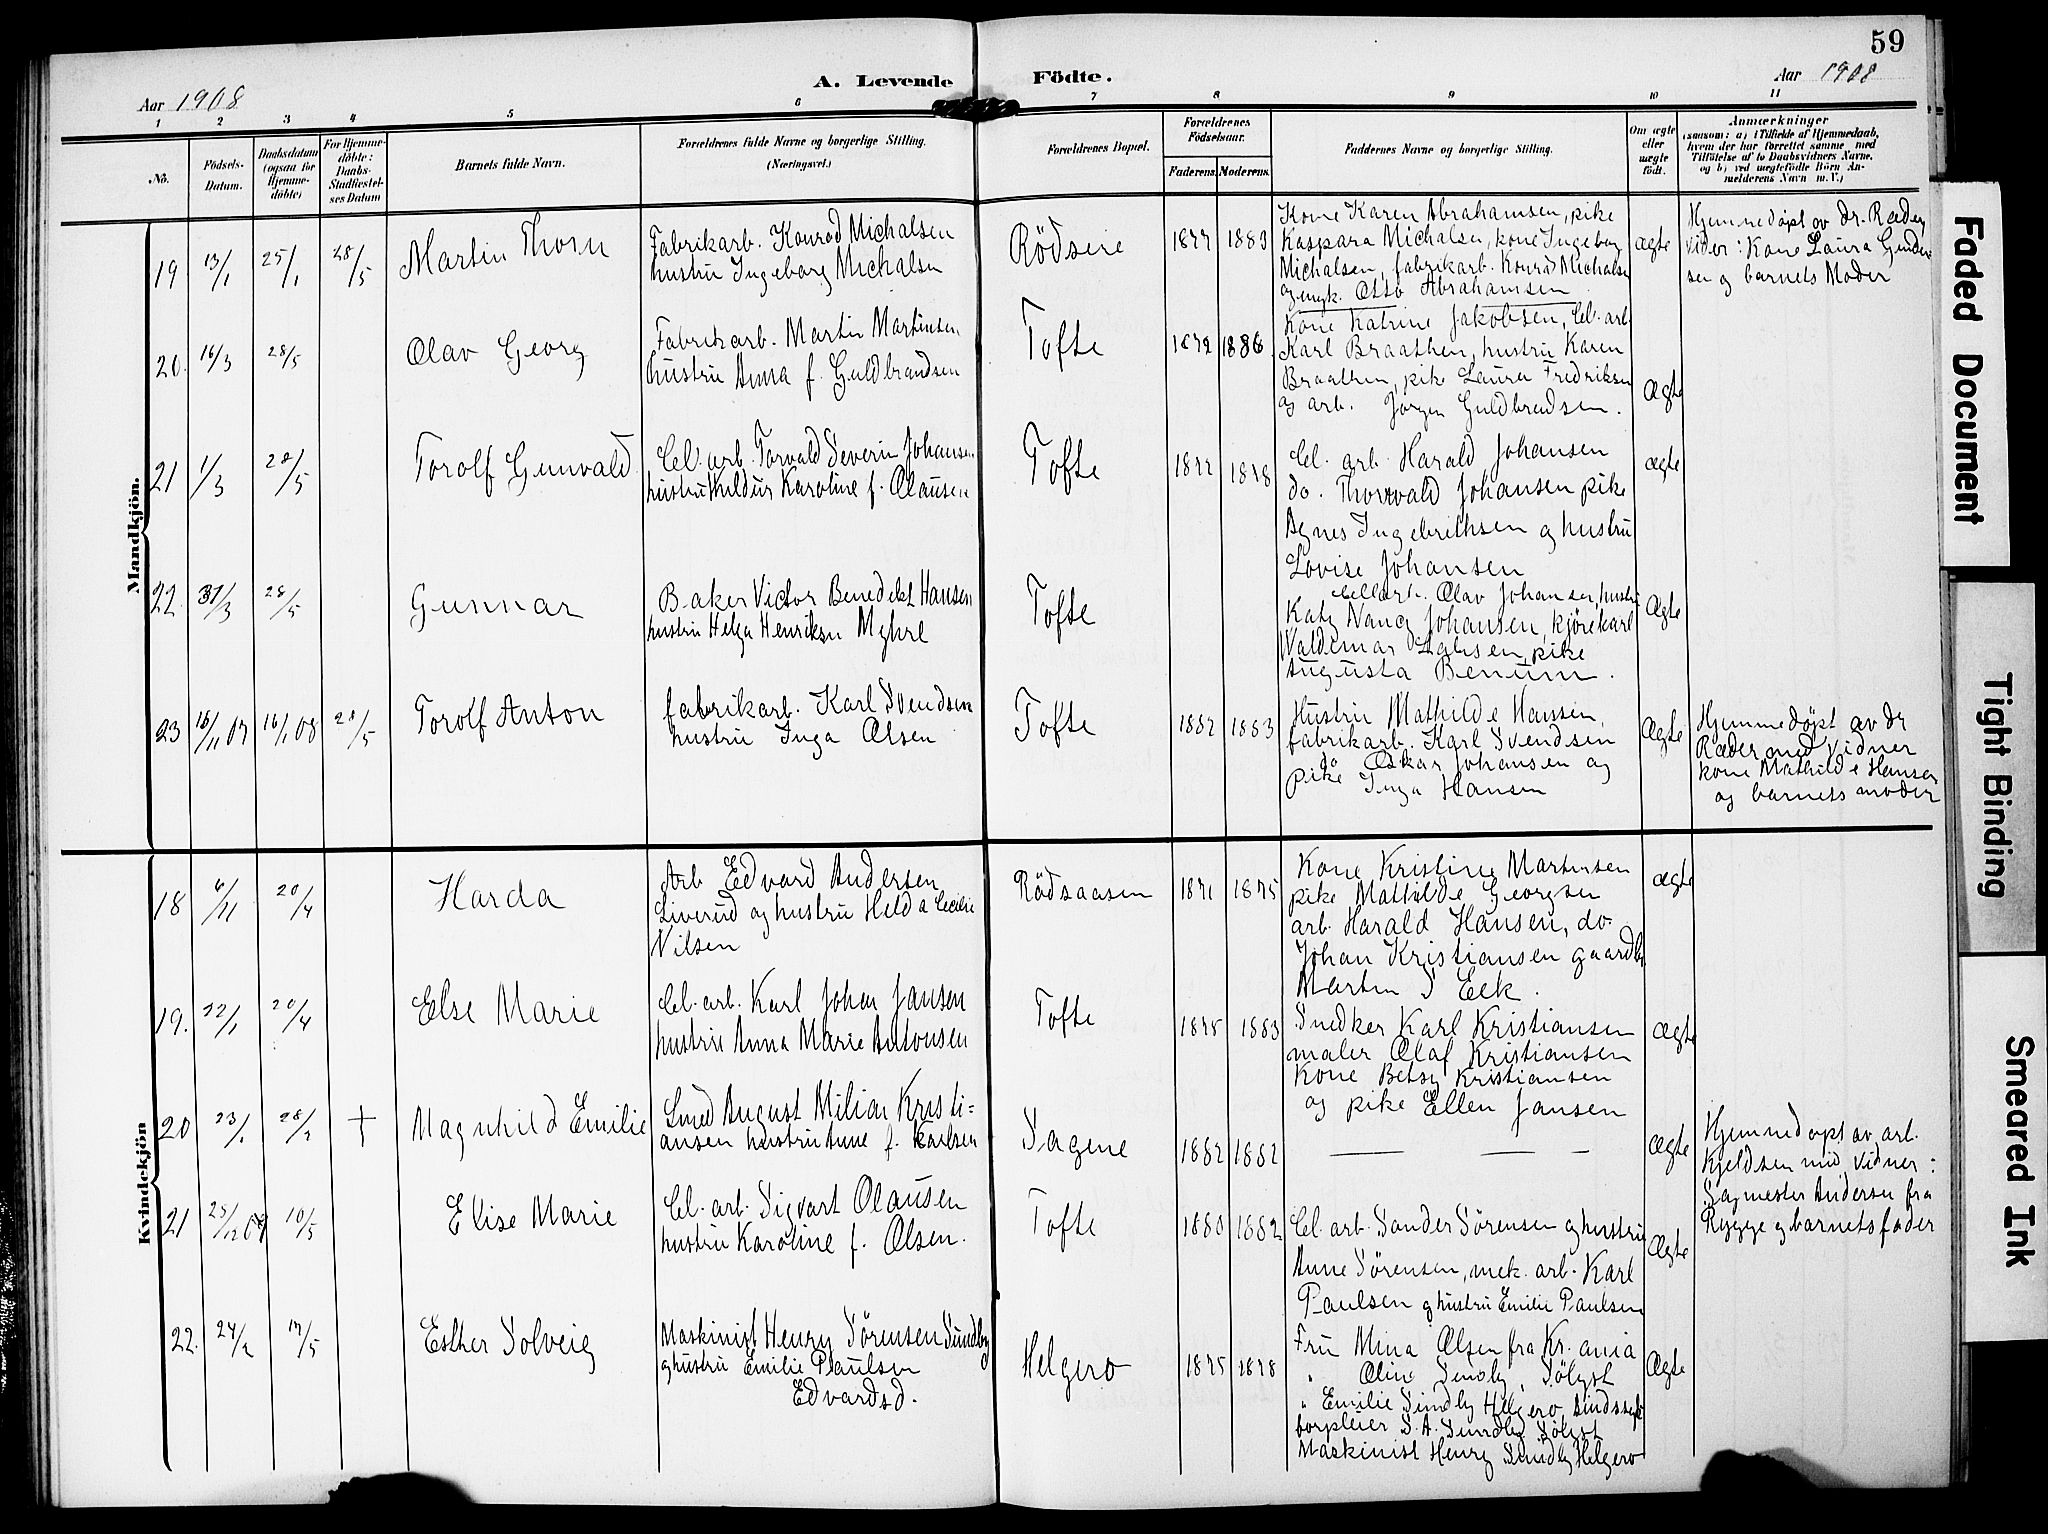 59
A. Levende Födte.
Aar 1908
Aar 1908
1 2 3 4 5 6 7 8 9 10 11
No.
Födsels-Datum.
Daabsdatum (ogsaa for Hjemme-döbte)
For Hjemme-döbte: Daabs-Stadfæstel-ses Datum
Barnets fulde Navn.
Forældrenes fulde Navne og borgerlige Stilling. (Næringsvei.)
Forældrenes Bopæl.
Forældrenes Födselsaar.
Faderens. Moderens.
Faddernes Navne og borgerlige Stilling.
Om ægte eller uægte födt.
Anmærkninger
(saasom: a) i Tilfælde af Hjemmedaab,
hvem der har forrettet samme, med
Tilföielse af to Daabsvidners Navne,
og b) ved uægtefödte Börn An-
melderens Navn m. V.)
Mandkjön.
19 13/1 25/1 28/5
Martin Thorn
Fabrikarb. Konrad Michalsen
hustru Ingeborg Michalsen
Rödseie
1877 1883
Kone Karen Abrahamsen, pike
Kaspara Michalsen, kone Ingeborg
Michalsen, fabrikarb. Konrad Michalsen
og ungk. Otto Abrahamsen
ægte
Hjemmedøpt av dr. Ræder
vidner: Kone Laura Gunder-
sen og barnets Moder
20. 16/3 28/5
Olav Georg
Fabrikarb. Martin Martinsen
hustru Anna f. Guldbrandsen
Tofte
1872 1886
Kone Katrine Jakobsen, Cel. arb.
Karl Braathen, hustru Karen
Braathen, pike Laura Fredriksen
og arb. Jørgen Guldbrandsen.
Ægte
21 1/3 28/5
Torolf Gunvald
Cel. arb. Torvald Severin Johansen
hustru Huldur Karoline f. Olausen
Tofte
1877 1878
Cel. arb. Harald Johansen
do. Thorvald Johansen pike
Agnes Ingebrithsen og hustru
Lovise Johansen
ægte
22. 31/3 28/5
Gunnar
Baker Victor Benedikt Hansen
hustru Helga Henriksen Myhre
Tofte
Cellarb. Olav Johansen, hustru
Katy Nancy Johansen, kjørekarl
Valdemar pike
Augusta Benum.
Ægte
23 16/11 07 16/1 08 28/5
Torolf Anton
fabrikarb. Karl Svendsen
hustru Inga Olsen
Tofte
1882 1883
Hustru Mathilde Hansen,
fabrikarb. Karl Svendsen
do Oskar Johansen og
Pike Inga Hansen
Ægte
Hjemmedøpt av dr
Ræder med vidner
kone Mathilde Hansen
og barnets moder
Kvindekjön
18 6/11 20/4
Harda
Arb Edvard Andersen
Liverud og hustru Hilda Cecilie
Nilsen
Rödsaasen
1871 1875
Kone Kristine Martinsen
pike Mathilde Georgsen
arb. Harald Hansen, do.
Johan Kristiansen gaardbr.
Martin S Eek.
ægte
19. 22/1 20/4
Else Marie
Cel. arb. Karl Johan Jansen
hustru Anna Marie Antonsen
Tofte
1875 1883
Snedker Karl Kristiansen
maler Olaf Kristiansen
Kone Betsy Kristiansen
og pike Ellen Jansen
Ægte
20 23/1 28/2 †
Magnhild Emilie
Smed August Milian Kristi=
ansen hustru Anne f. Karlsen
Sagene
1882 1882
— — —
Ægte
Hjemmedøpt av arb.
Kjeldsen med vidner:
Sagmester Andersen fra
Rygge og barnets fader
21 25/12 07 10/5
Elise Marie
Cel. arb. Sigvart Olausen
hustru Karoline f. Olsen.
Tofte
1880 1882
Cel. arb. Sander Sörensen og hustru
Anne Sörensen, mek. arb. Karl
Paulsen og hustru Emilie Paulsen
Ægte
22. 24/2 17/5
Esther Solveig
Maskinist Henry Sörensen Sundby
og hustru Emilie Paulsen
Edvardsd.
Helgero
1875 1878
Fru Mina Olsen fra Kr.ania
" Oline Sundby, Sölyst
" Emilie Sundby Helgero, Sindssyge
borpleier S. A. Sundby Sölyst
Maskinist Henry Sundby Helgero
Ægte
Faded Document
Tight Binding
Smeared Ink